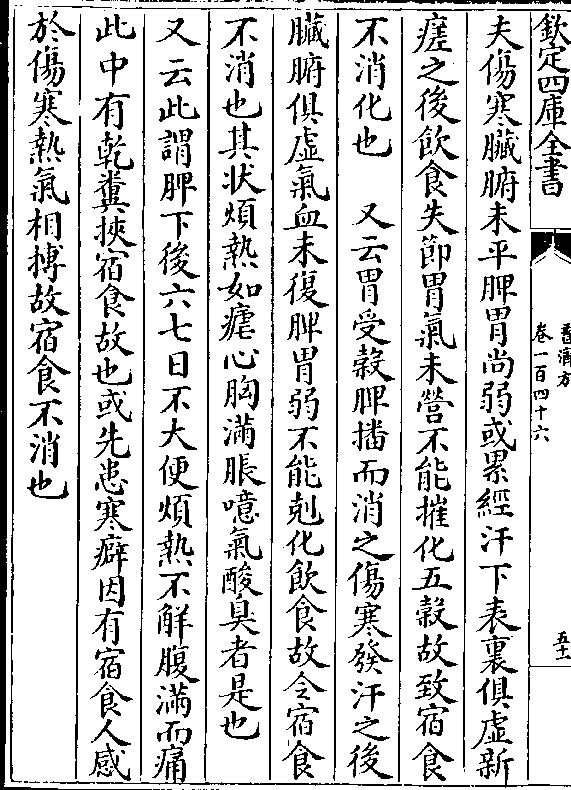 欽定四庫全書
普濟方
卷一百四十六
五十
夫傷寒臟腑未平脾胃尚弱或累經汗下表裏俱虛新
瘥之後飲食失節胃氣未營不能摧化五穀故致宿食
不消化也　又云胃受穀脾播而消之傷寒發汗之後
臟腑俱虛氣血未復脾胃弱不能剋化飲食故令宿食
不消也其狀煩熱如瘧心胸滿脹噫氣酸臭者是也
又云此謂脾下後六七日不大便煩熱不解腹滿而痛
此中有乾糞挾宿食故也或先患寒癖因有宿食人感
於傷寒熱氣相搏故宿食不消也